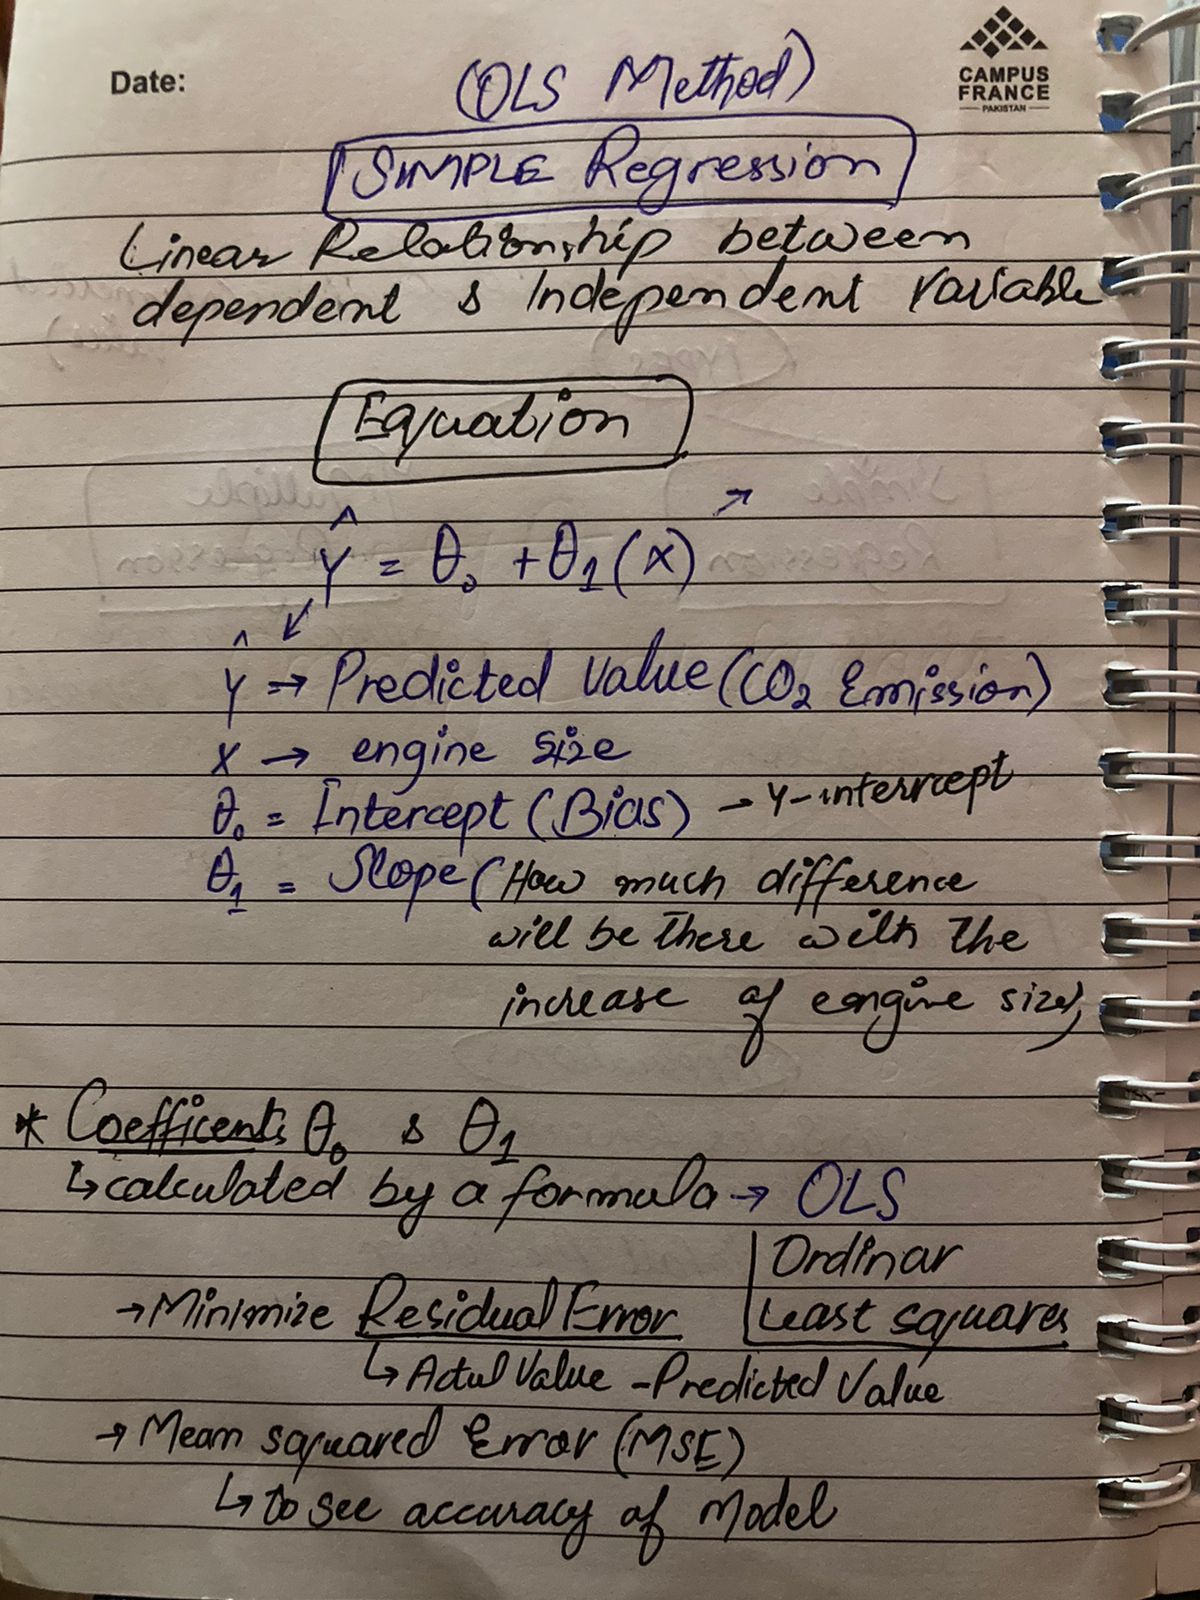 Date:
CAMPUS
FRANCE
PAKISTAN
(OLS Method)
SIMPLE Regression
Linear Relationship between
dependent & Independent Variable
Equation
Ŷ = θ₀ + θ₁(x)
Ŷ → Predicted Value (CO₂ Emission)
x → engine size
θ₀ = Intercept (Bias) → Y-intercept
θ₁ = Slope (How much difference
will be there with the
increase of eengine size)
* Coefficents θ₀ & θ₁
↳ calculated by a formula → OLS
Ordinar
Least squares
→ Minimize Residual Error
↳ Actul Value - Predicted Value
→ Mean squared Error (MSE)
↳ to see accuracy of Model